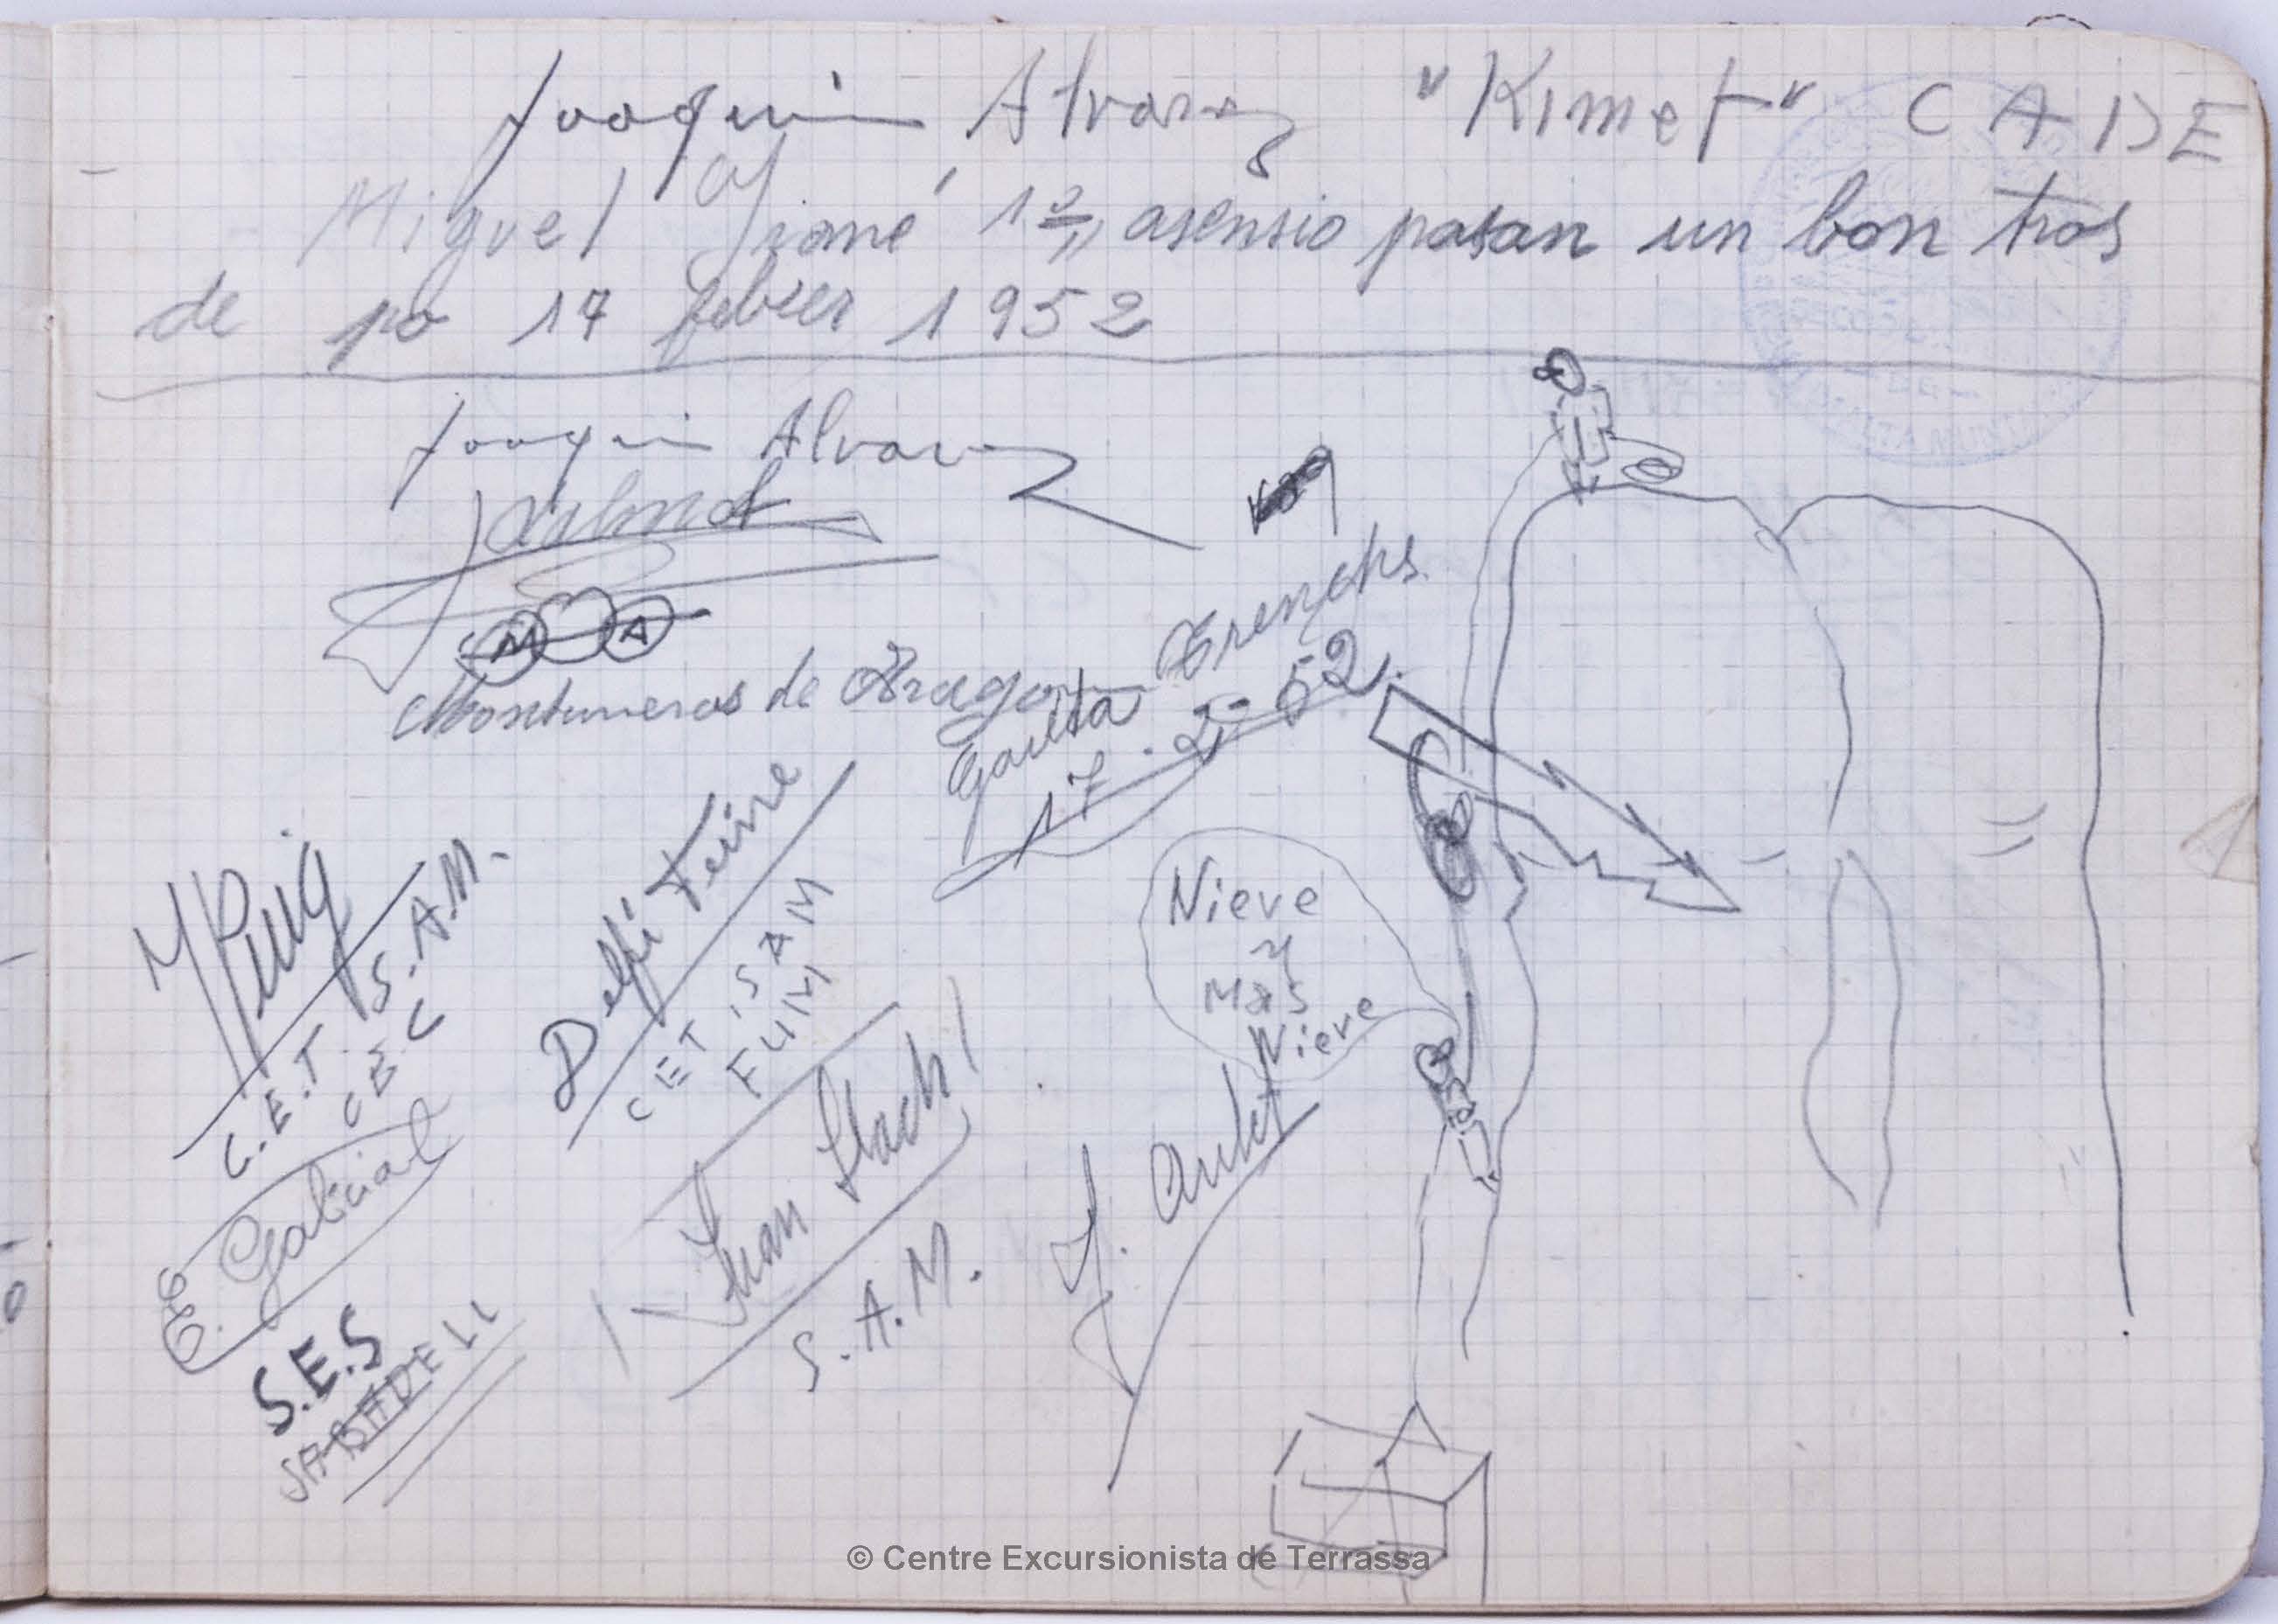 Joaquin Alvarez "Kimet" CADE
Miguel Jiané 1º asensio pasan un bon tros
de po 17 febrer 1952
Joaquin Alvarez
M A
Montuneros de Aragon
Garlta Trenchs.
17-2-52.
M Puig
C.E.T. S.A.M.
C E C
Delfi Feixe
C E T , S A M
F U M
E. Gabriel
S.E.S
SABADELL
Juan Llach
S.A.M.
J. Aulet
Nieve
y
Mas
Nieve
ALTA MUNTA
© Centre Excursionista de Terrassa